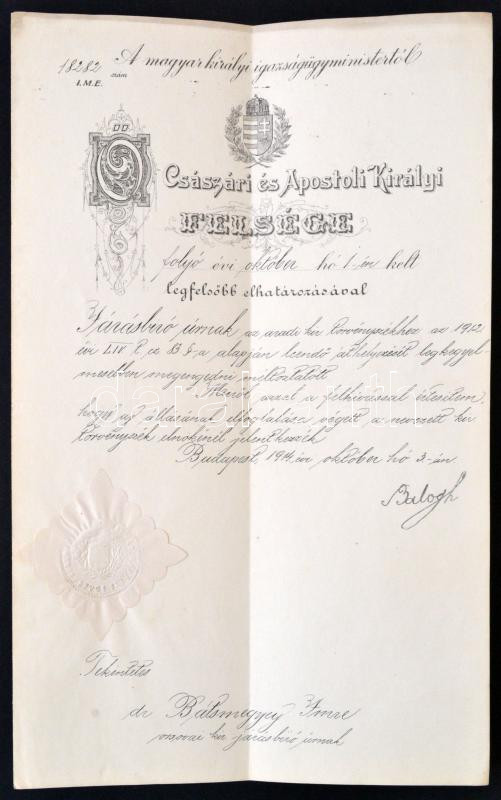 18282 szám
I.M.E.
A magyar királyi igazságügyministertől
Ő Császári és Apostoli Királyi
FELSÉGE
folyó évi október hó 1-én kelt
legfelsőbb elhatározásával
Járásbiró úrnak az aradi kir törvényszékhez az 1912
évi LIV t. cz 83 §-a alapján leendő áthelyezését legkegyel-
mesebben megengedni méltóztatott
Miről azzal a felhivással értesitem,
hogy uj állásának elfoglalása végett a nevezett kir
törvényszék elnökénél jelentkezzék
Budapest, 1914 évi október hó 3-án
Balogh
Tekintetes
dr Bátsmegyey Imre
orsovai kir járásbiró úrnak